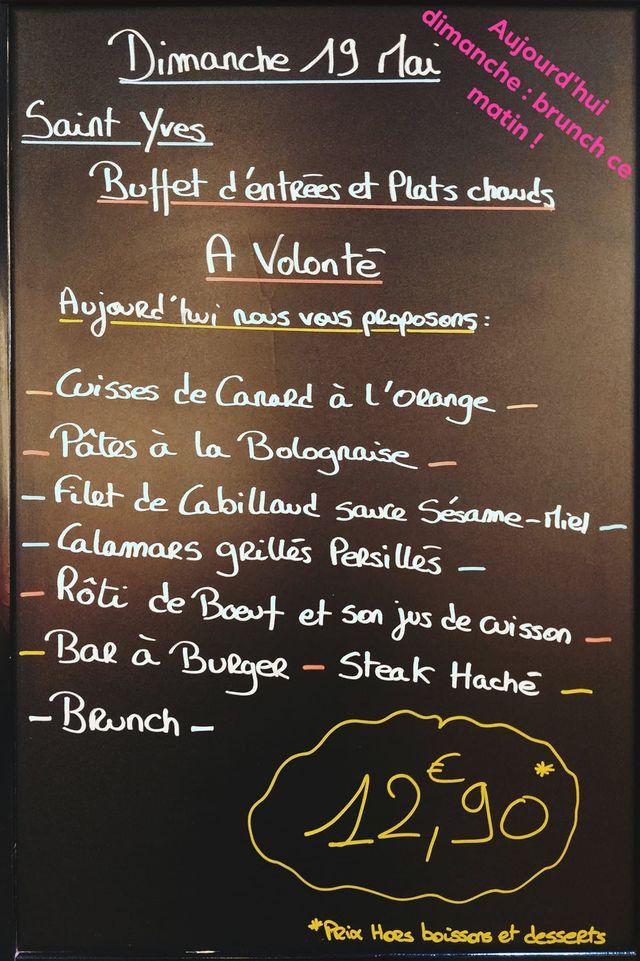 Dimanche 19 Mai
Aujourd'hui
dimanche : brunch ce
matin !
Saint Yves
Buffet d'éntrées et Plats chauds
A Volonté
Aujourd'hui nous vous proposons :
- Cuisses de Canard à l'orange -
- Pâtes à la Bolognaise -
- Filet de Cabillaud sauce Sésame-Miel -
- Calamars grillés Persillés -
- Rôti de Boeuf et son jus de cuisson -
- Bar à Burger - Steak Haché -
- Brunch -
12,90€*
*Prix Hors boissons et desserts